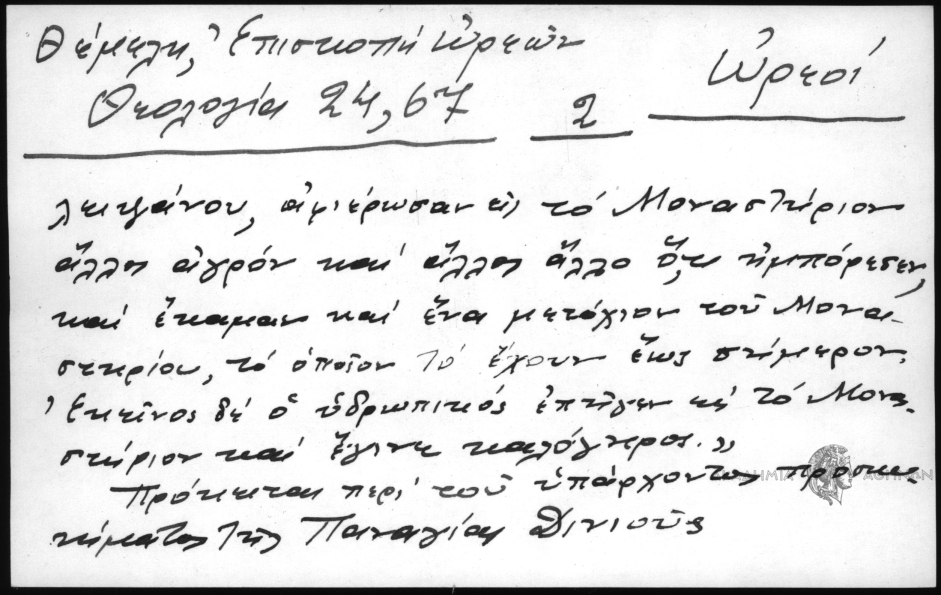 Θέμελη, Ἐπισκοπή Ὠρεῶν
Θεολογία 24, 67
2
Ὠρεοί
λειψάνου, ἀφιέρωσαν εἰς τό Μοναστήριον
ἄλλος ἀγρόν καί ἄλλος ἄλλο ὅ,τι ἠμπόρεσεν,
καί ἔκαμαν καί ἕνα μετόχιον τοῦ Μονα-
στηρίου, τό ὁποῖον τό ἔχουν ἕως σήμερον.
Ἐκεῖνος δέ ὁ ὑδρωπικός ἐπῆγεν εἰς τό Μονα-
στήριον καί ἔγινε καλόγηρος.»
Πρόκειται περί τοῦ ὑπάρχοντος προσκυ-
νήματος τῆς Παναγίας Δινιοῦς
ΑΘΗΝΩΝ